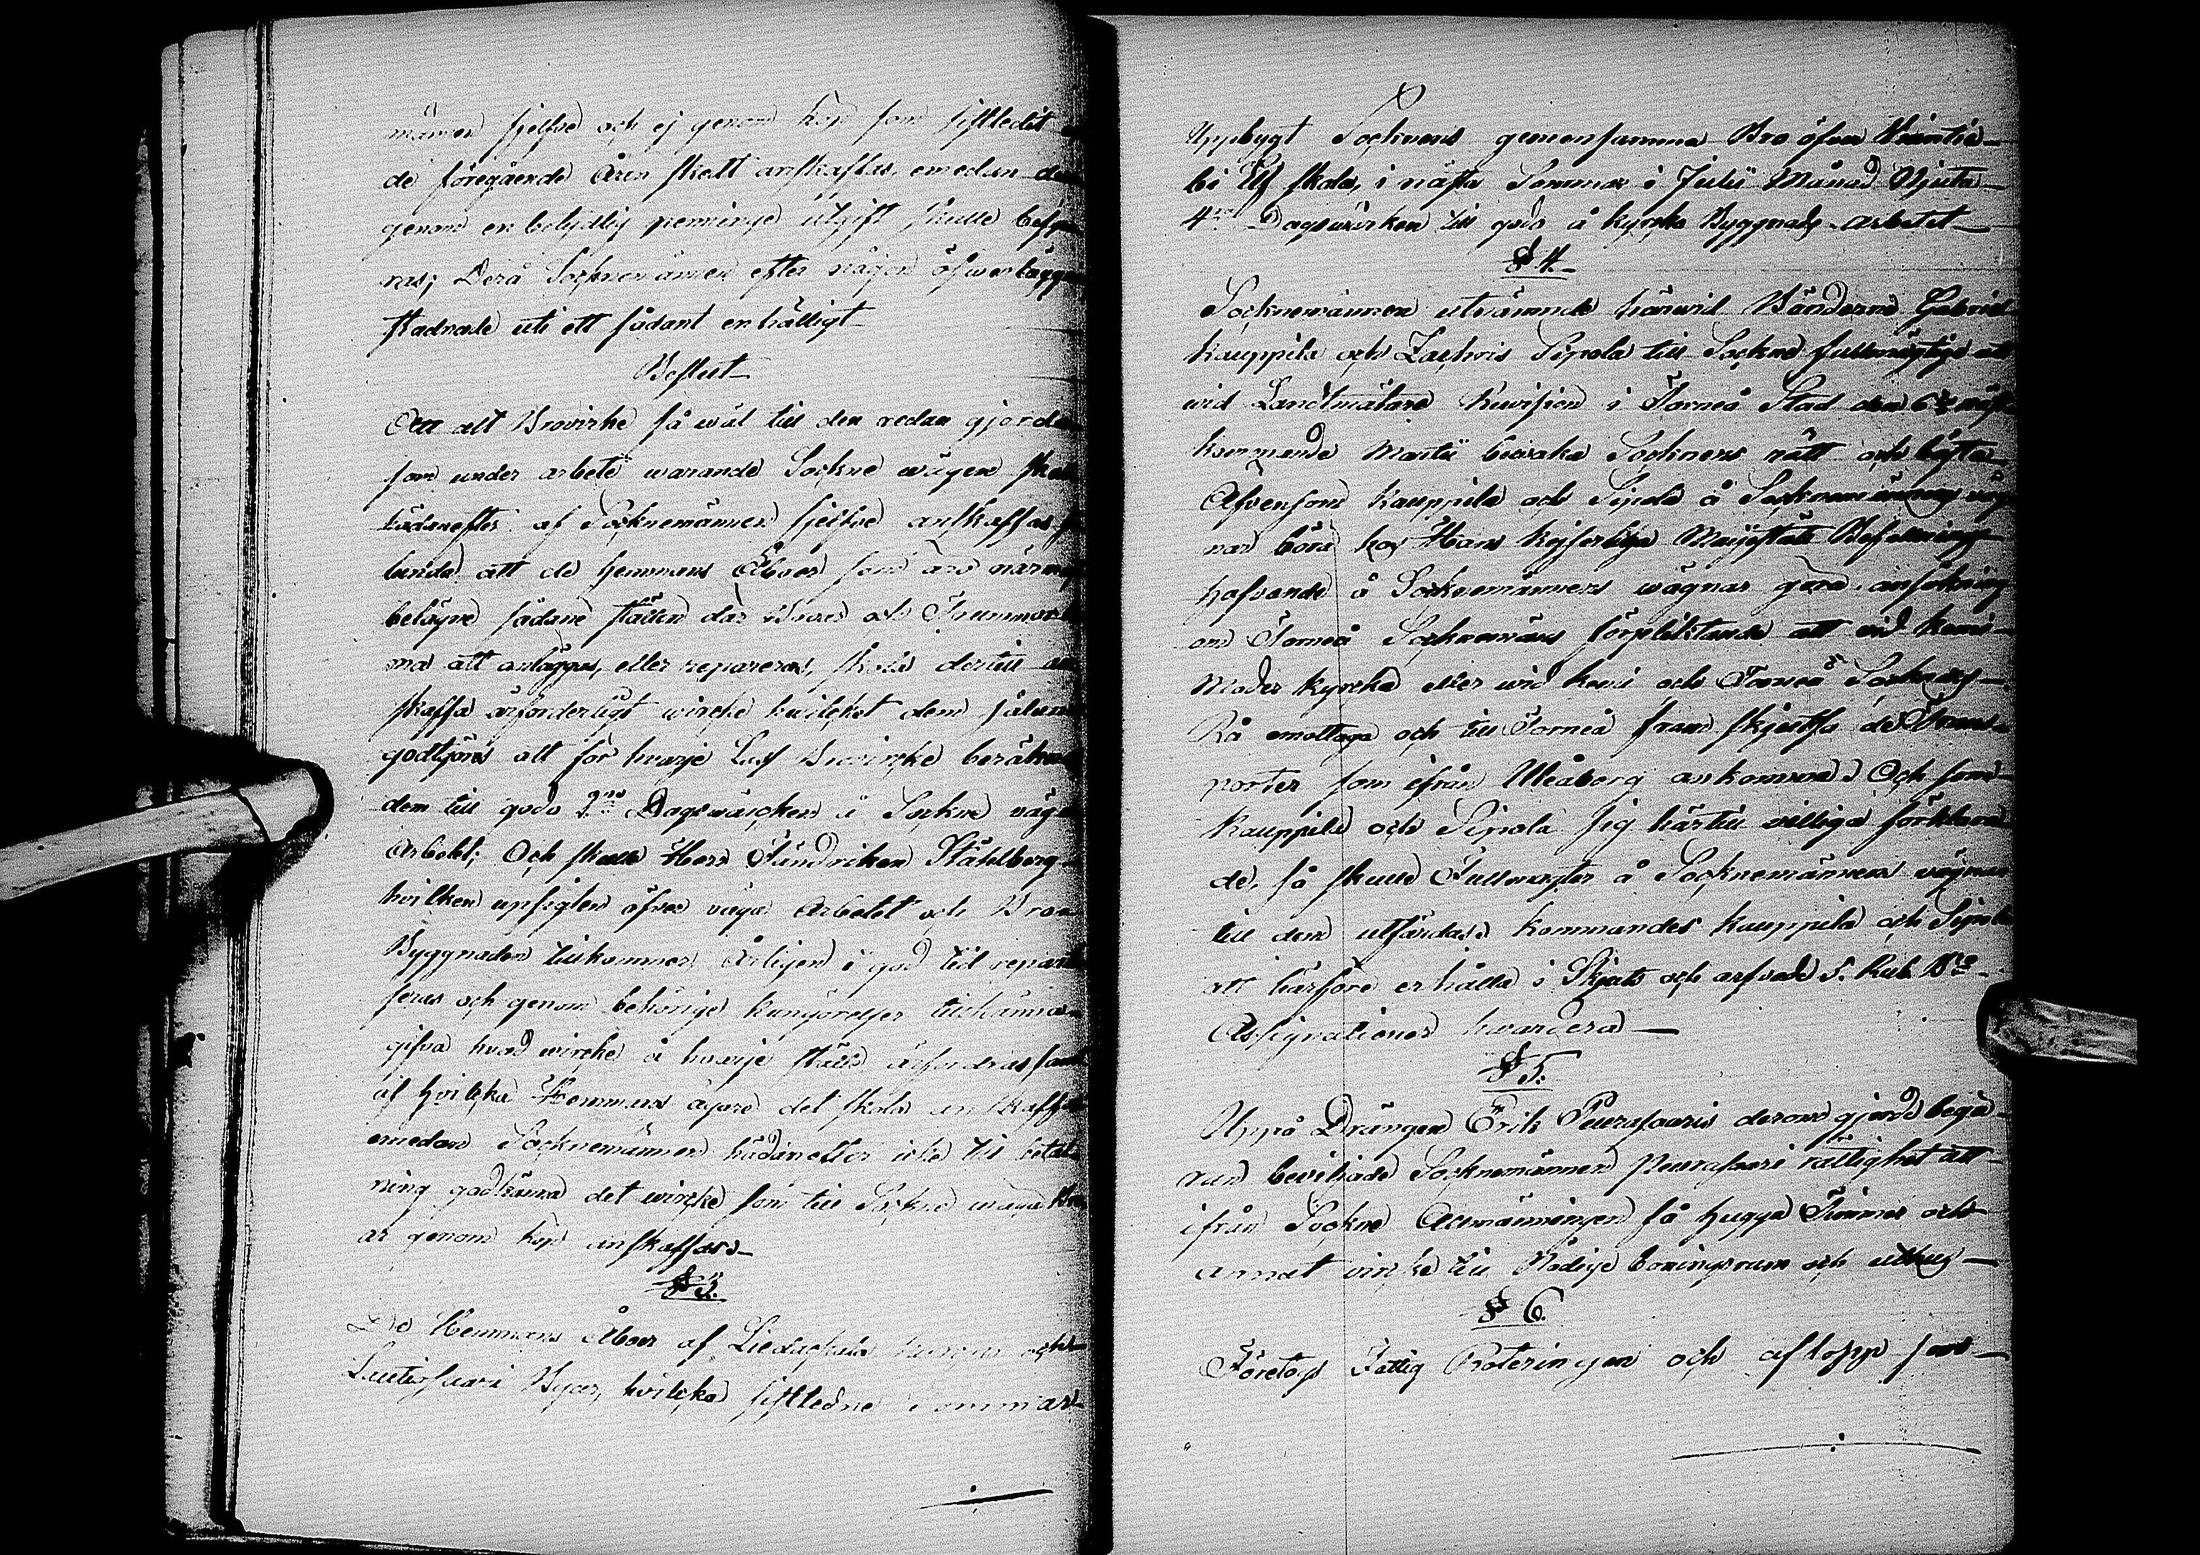 männen sjelfve och ej genom Köp som sistledit
de föregående Åren skett anskaffas, emedan
genom en betydlig penninge utgift skulle bespa
ras; Derå Socknemännen efter någon öfwerlägg
stadnade uti ett sådant enhälligt
Beslut
Att alt Brovirke så wäl till den redan gjorde
som under arbete warande Sockne wägen skall
hädanefter af Socknemännen sjelfve anskaffas så
lunda att de Hemmans Åboer som äro närmast
belägne sådane ställen der Broer och Trummor
ma att anläggas, eller repareras, skola dertill an
skaffa erforderligt wircke hwilcket dem sålunda
godtgöres att för hwarje Lass Brovircke beräknas
dem till godo 2ne Dagswärcken i Sockne väga
Arbetet; Och skulle Herr Fändriken Ståhlberg
hvilken upsigten öfver väga Arbetet och Broe
Byggnaden tillkommer, Årligen i god tid repar
feras och genom behörige kungörelser tillkänna
gifva hvad wircke å hvarje ställe erfordras samt
af hvilcka Hemmans ägare det skola anskaffas
emedan Socknemännen hädanefter icke till betal
ning godkänna det wircke som till Sockne wäga Bro
ar genom köp anskaffas.
§ 3.
De Hemmans Åboer af Liedakkala och
Lautiosaari Byar, hvilcka sistledne Sommar
Uppbygt Socknens gemensamma Bro öfver
be Elf skola, i nästa Sommar i Julii Månad Njuta
4ra Dagswärken till godo å kyrko Byggnads arbetet
§ 4.
Socknemännen utnämnde härwid Bönderne Gabriel
Kauppila och Zachris Sipola till Sockne fullmägtige att
wid Landtmätare Revision i Torneå Stad den 6te näst
kommande Martii bevaka Socknens rätt och bästa
Äfvensom Kauppila och Sipola å Socknemännens väg
nar böra hos Hans Kejserliga Majestäts Befallning
hafvande å Socknemännens wägnar göra ansökning
om Torneå Socknemäns förpliktande att vid Kemi
Moder Kyrcka eller wid Kemi och Torneå Sockness
Rå emottaga och till Torneå fram skjutsa de Trans
porter som ifrån Uleåborg ankomma. Och som
Kauppila och Sipola sig härtill villige förklara
de, så skulle Fullmagter å Socknemännens vägnar
till dem utfärdas, kommandes Kauppila och Sipola
att härföre erhålla i Skjuts och arfvode 5. Rub. Bco
Assignationer hvardera
§ 5.
Uppå Drängen Erik Peurasaaris derom gjorde begä
ran beviljade Socknemännen Peurasaari rättighet att
ifrån Sockne Allmänningen få hugga Timmer och
annat wirke till Nödige boningsrum och uthus
§ 6.
Företogs Fattig Roteringen och aflopp som